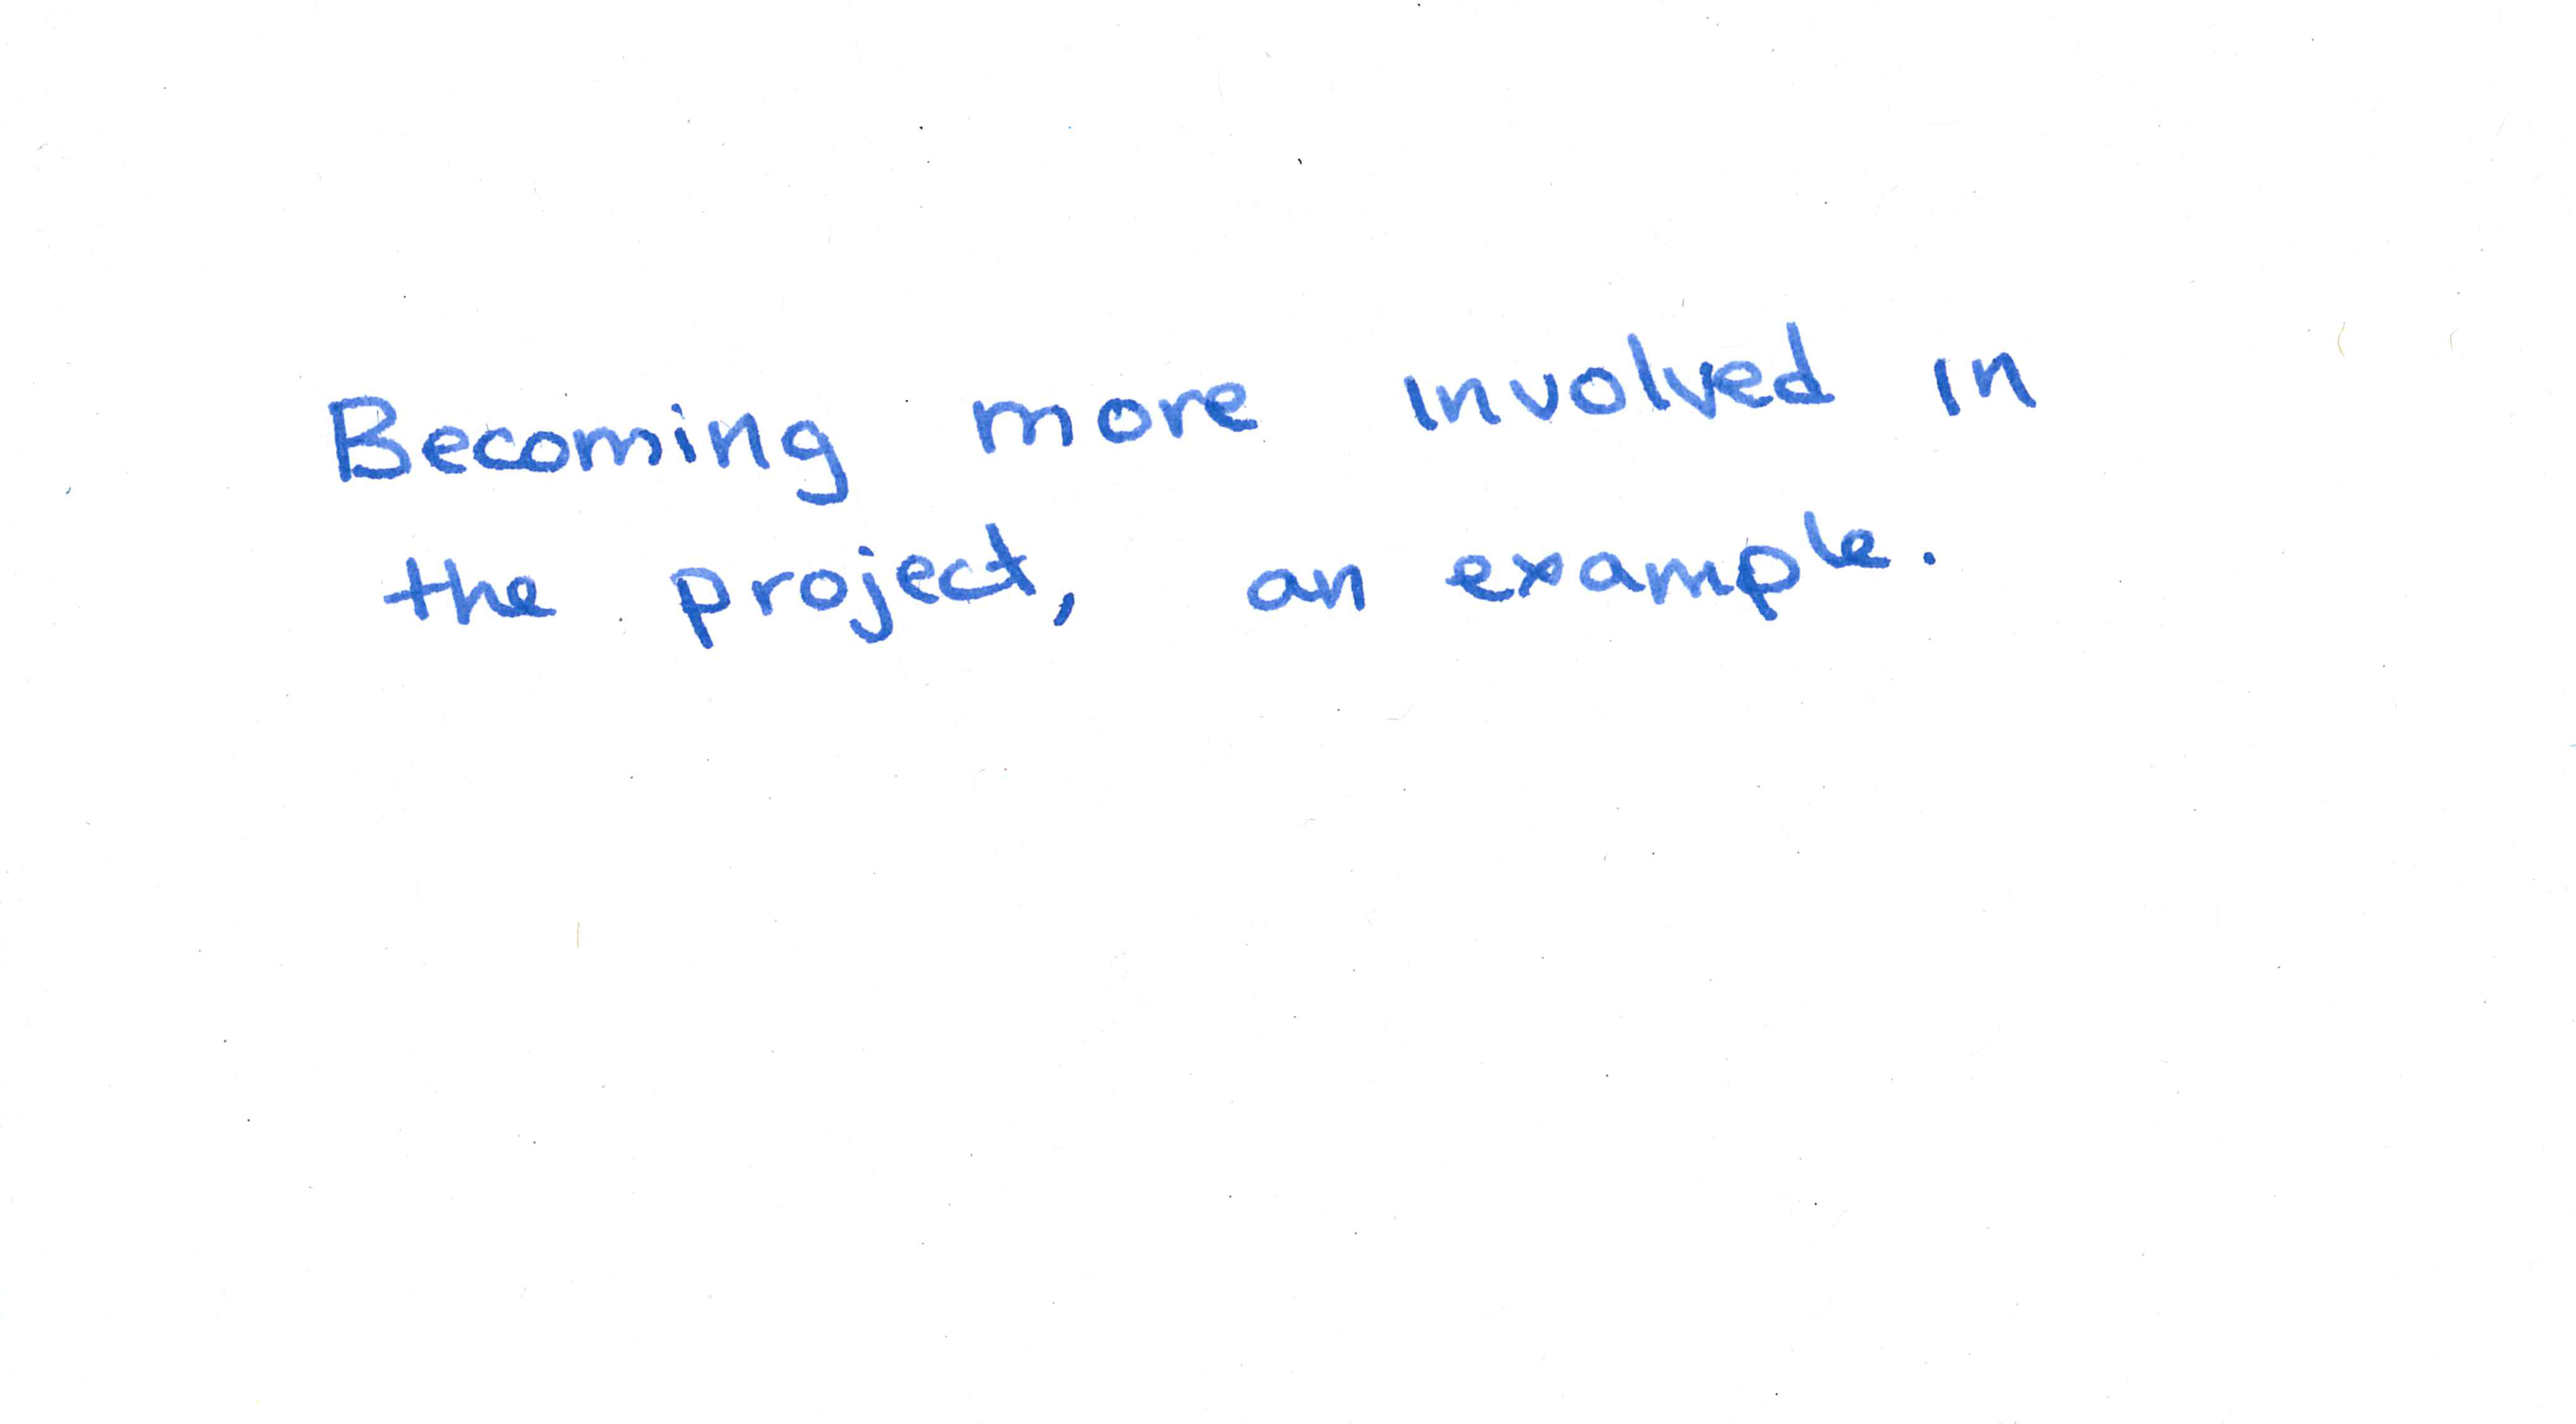 Becoming more involved in
the project, an example.